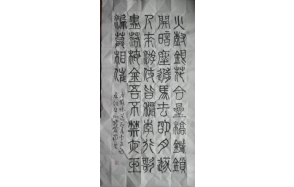 火樹銀花合星橋鐵鎖
開暗塵隨馬去明月逐
人來游伎皆穠李行歌
盡落梅金吾不禁夜玉
漏莫相催